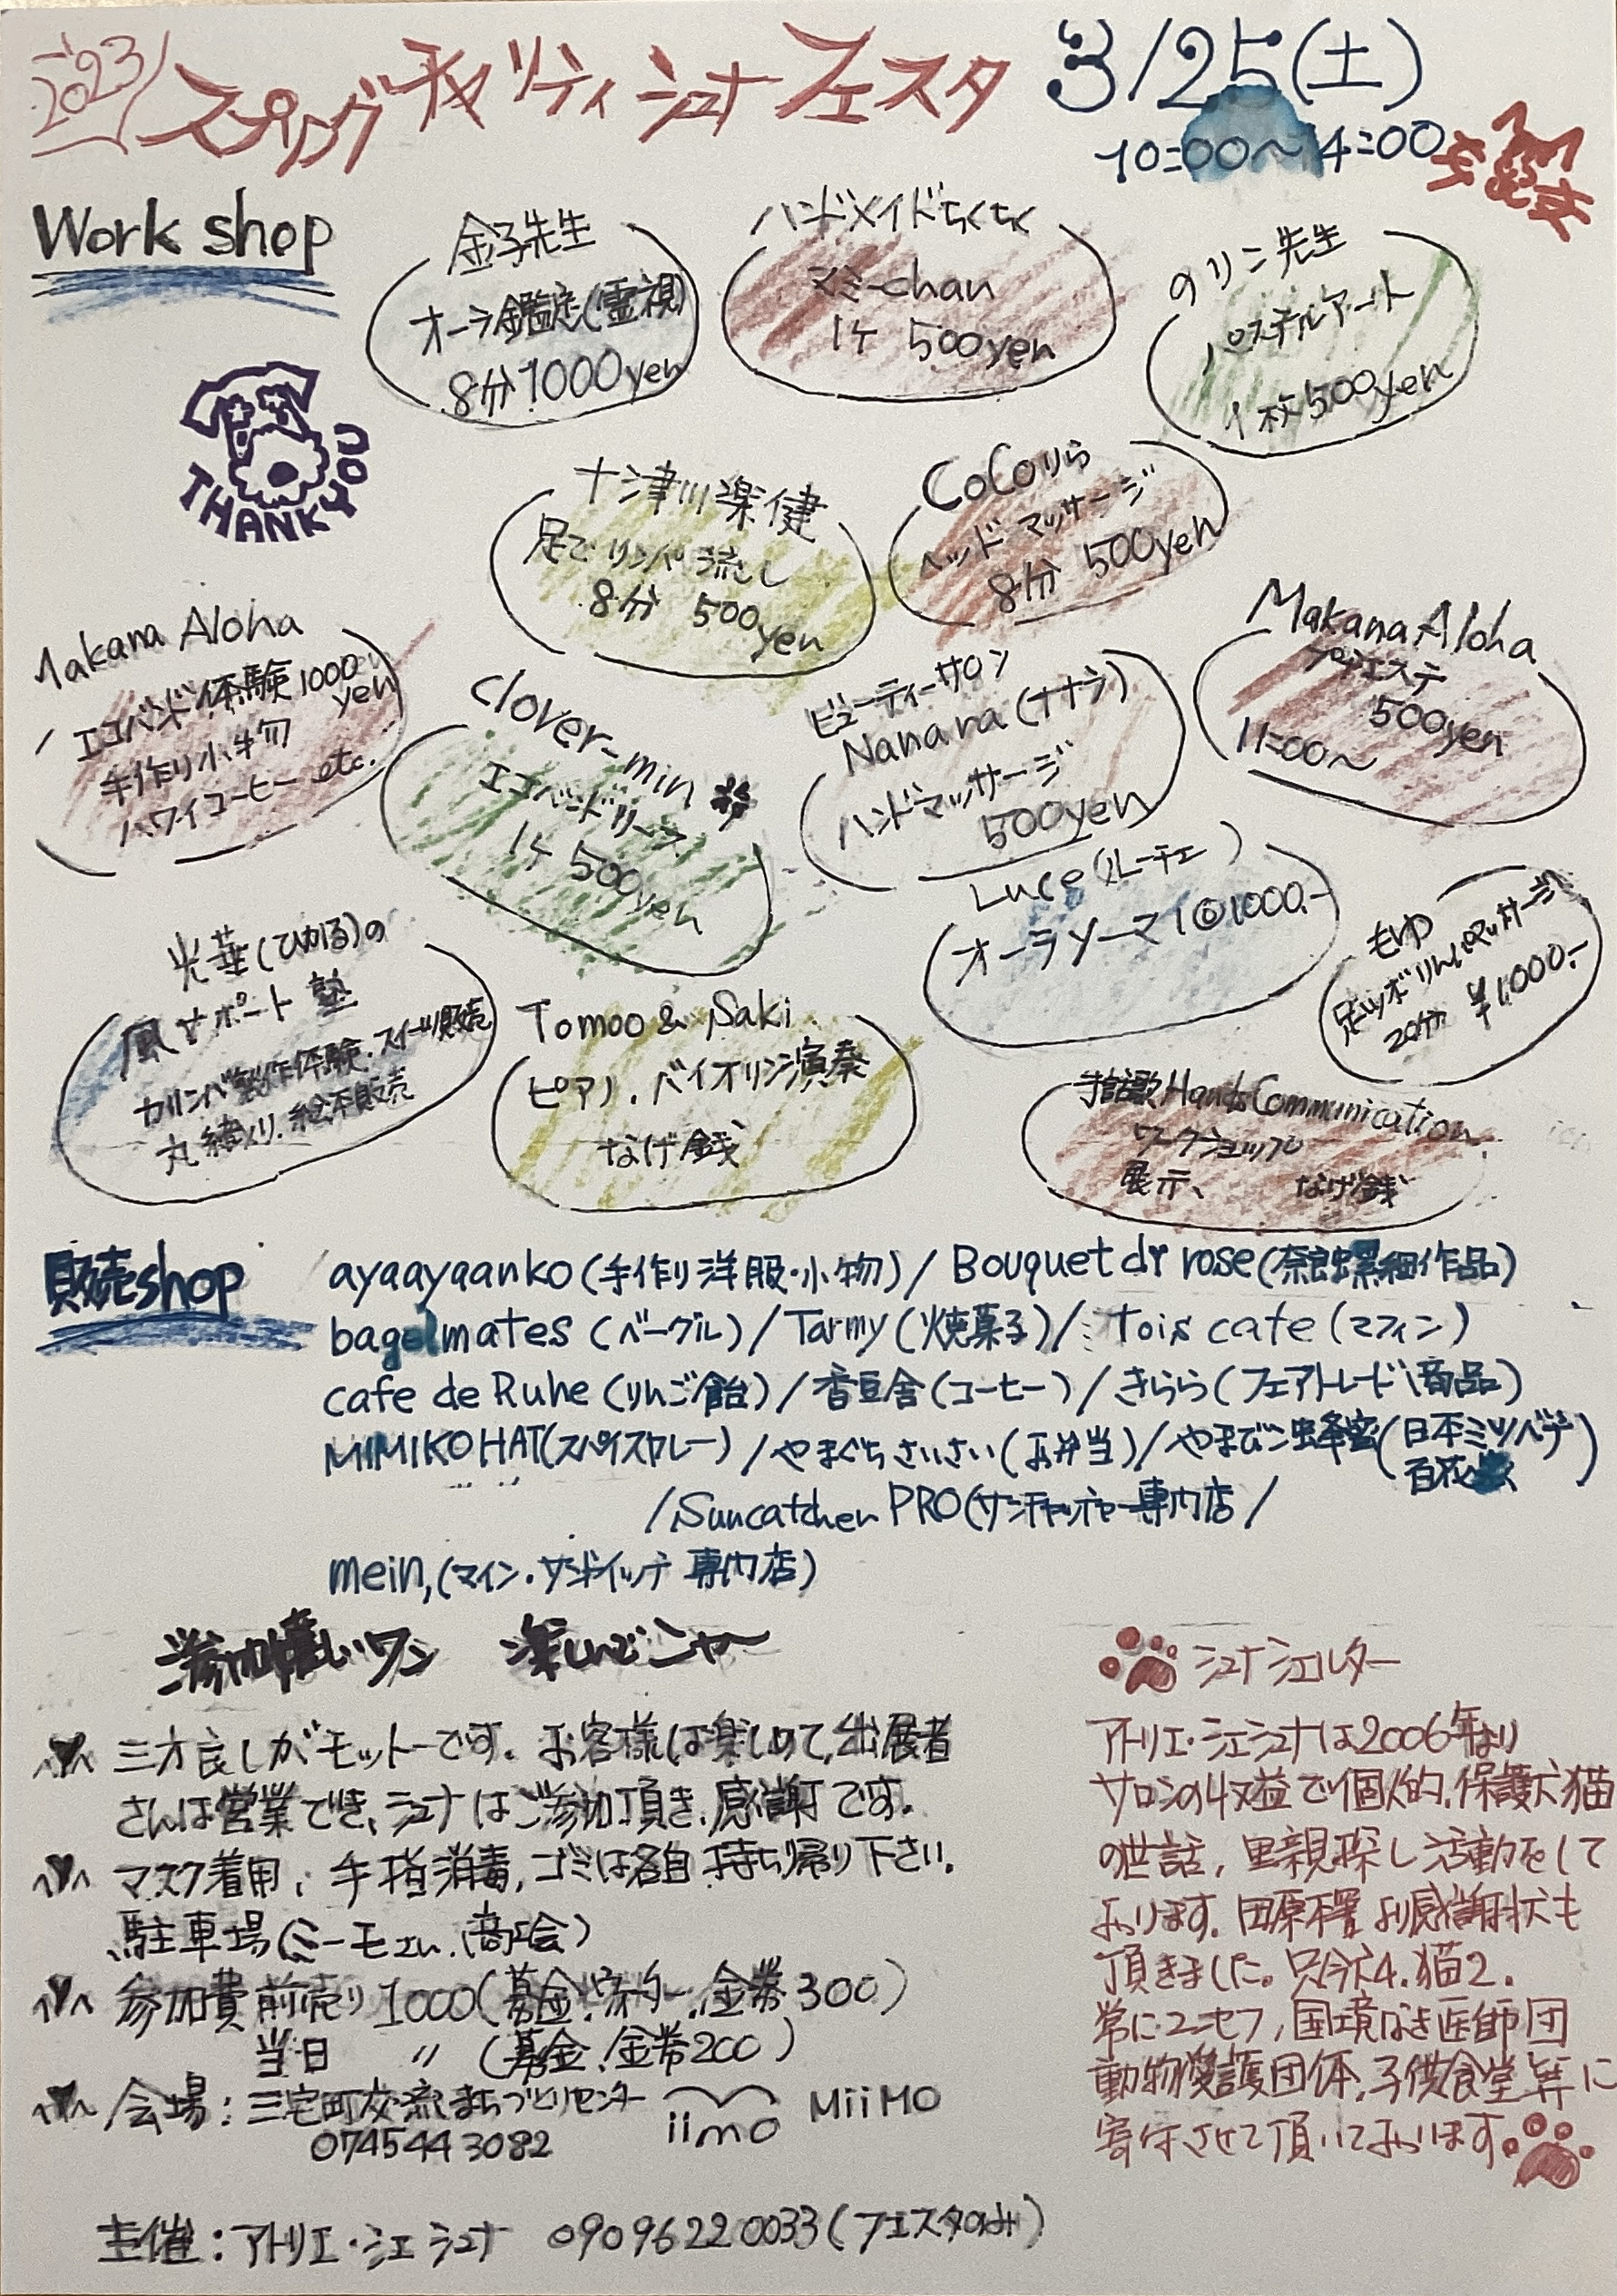 2023
スプリングチャリティシュナフェスタ 3/25(土)
10:00〜14:00
Work shop
金子先生
オーラ鑑定(霊視)
8分1000yen
ハンドメイドちくちく
マミーchan
1ケ 500yen
のリン先生
パステルアート
1枚500yen
THANK YOU
十津川楽健
足でリンパ流し
8分 500yen
CoCoりら
ヘッドマッサージ
8分 500yen
Makana Aloha
エコバンド体験1000yen
手作り小物
ハワイコーヒーetc.
clover-min
エコバンドリース
1ケ 500yen
ビューティーサロン
Nanara(ナナラ)
ハンドマッサージ
500yen
Makana Aloha
プチエステ
500yen
11:00〜
Luce(ルーチェ)
オーラソーマ1@1000.-
もゆ
足ツボリンパマッサージ
20分 ¥1,000.-
光華(ひかる)の
風サポート塾
カリンバ製作体験.スイーツ販売
丸縁入り.絵本販売
Tomoo & Saki
ピアノ.バイオリン演奏
なげ銭
手話歌HandsCommunication
ワークショップ
展示、 なげ銭
販売shop
ayaayaanko(手作り洋服・小物)/Bouquet di rose(奈良螺鈿作品)
bagelmates(ベーグル)/Tarmy(焼菓子)/Tois cafe(マフィン)
cafe de Ruhe(りんご飴)/香豆舎(コーヒー)/きらら(フェアトレード商品)
MIMIKOHAT(スパイスカレー)/やまぐちさいさい(お弁当)/やまびこ蜂蜜(日本ミツバチ
百花蜜)
/Suncatcher PRO(サンキャッチャー専門店/
mein,(マイン・サンドイッチ専門店)
ご参加嬉しいワン 楽しんでニャー
三方良しがモットーです。お客様は楽しめて,出展者
さんは営業でき、シュナはご参加頂き、感謝です。
マスク着用,手指消毒,ゴミは各自持ち帰り下さい。
駐車場(ミーモ.商工会)
参加費 前売り1000(募金.金券300)
当日 〃 (募金.金券200)
会場:三宅町交流まちづくりセンター iimo MiiMO
0745443082
主催:アトリエ・シェシュナ 09096220033(フェスタのみ)
シュナシェルター
アトリエ・シェシュナは2006年より
サロンの収益で個人的.保護犬猫
の世話,里親探し活動をして
おります.田原本署より感謝状も
頂きました。只今犬4.猫2.
常にユニセフ,国境なき医師団
動物愛護団体.子供食堂等に
寄付させて頂いております.